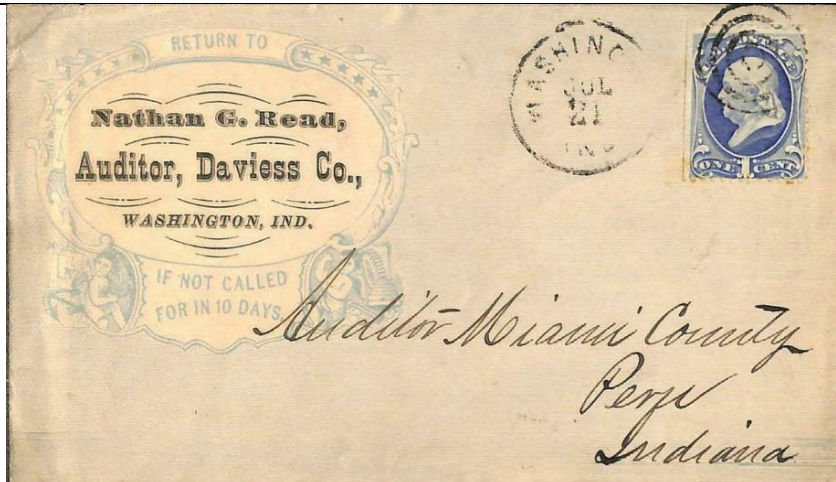 RETURN TO
Nathan G. Read,
Auditor, Daviess Co.,
WASHINGTON, IND.
IF NOT CALLED
FOR IN 10 DAYS
WASHING
JUL
21
IND
POSTAGE
ONE 1 CENT
Auditor Miami County
Peru
Indiana